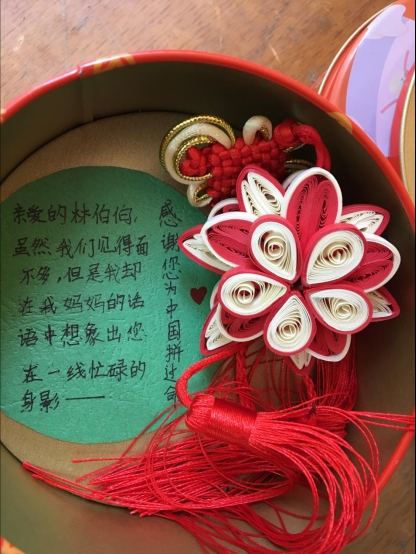 亲爱的林伯伯,
虽然我们见得面
不多,但是我却
在我妈妈的话
语中想象出您
在一线忙碌的
身影——
感谢您为中国拼过命